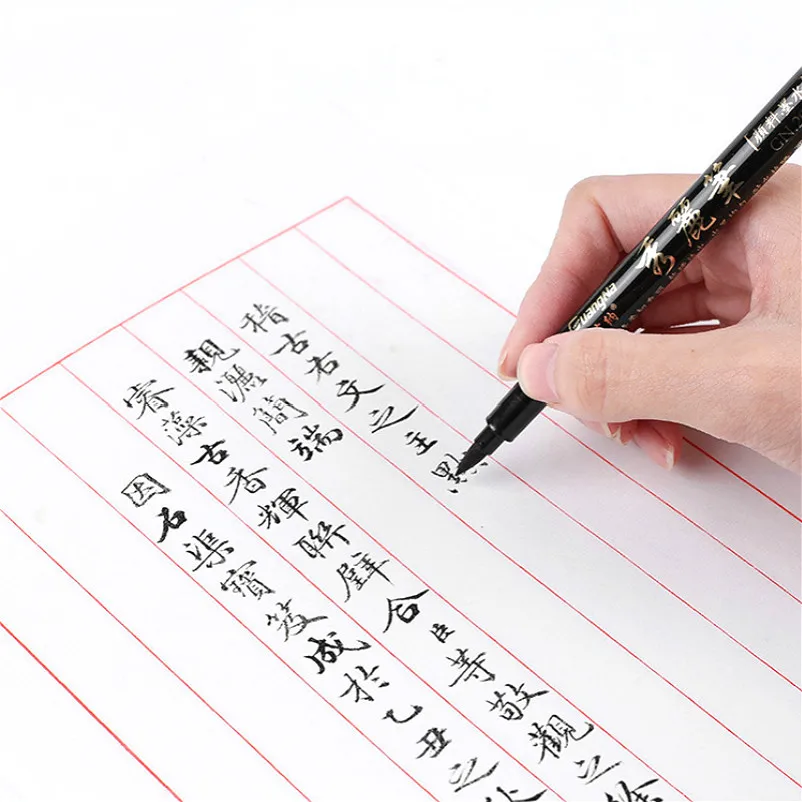 稽古右文之主
親灑簡端
睿藻古香輝聯璧合臣等敬觀之餘
因石渠寶笈成於乙丑之秋
秀麗筆
Guangna
【顏料墨水